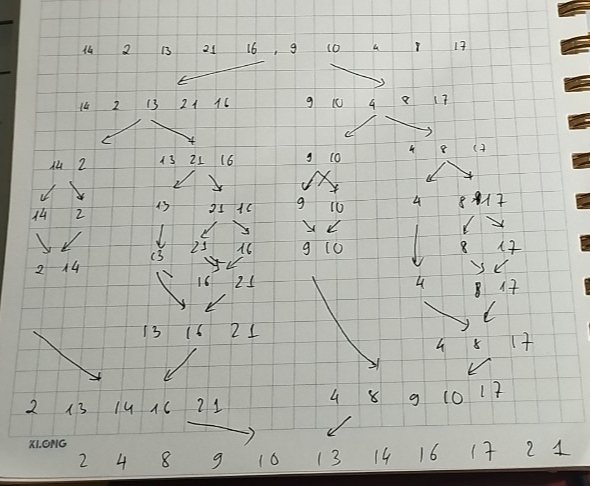 14 2 13 21 16 , 9 10 4 8 17
14 2 13 21 16 9 10 4 8 17
14 2 13 21 16 9 10 4 8 17
14 2 13 21 16 9 10 4 8 17
2 14 13 21 16 9 10 8 17
16 21 4 8 17
13 16 21 4 8 17
2 13 14 16 21 4 8 9 10 17
XI.ONG
2 4 8 9 10 13 14 16 17 2 1